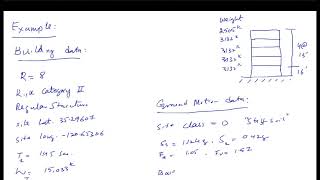 Example:
Building data:
R = 8
Risk category II
Regular Structure
site lat. 35.29607
site long. -120.65306
T = 1.45 sec.
W = 15,033k
Weight
2505k
3132k
3132k
3132k
3132k
4@
13'
15'
Ground Motion data:
Site class = D
Fa = 1.05
Fv = 1.62